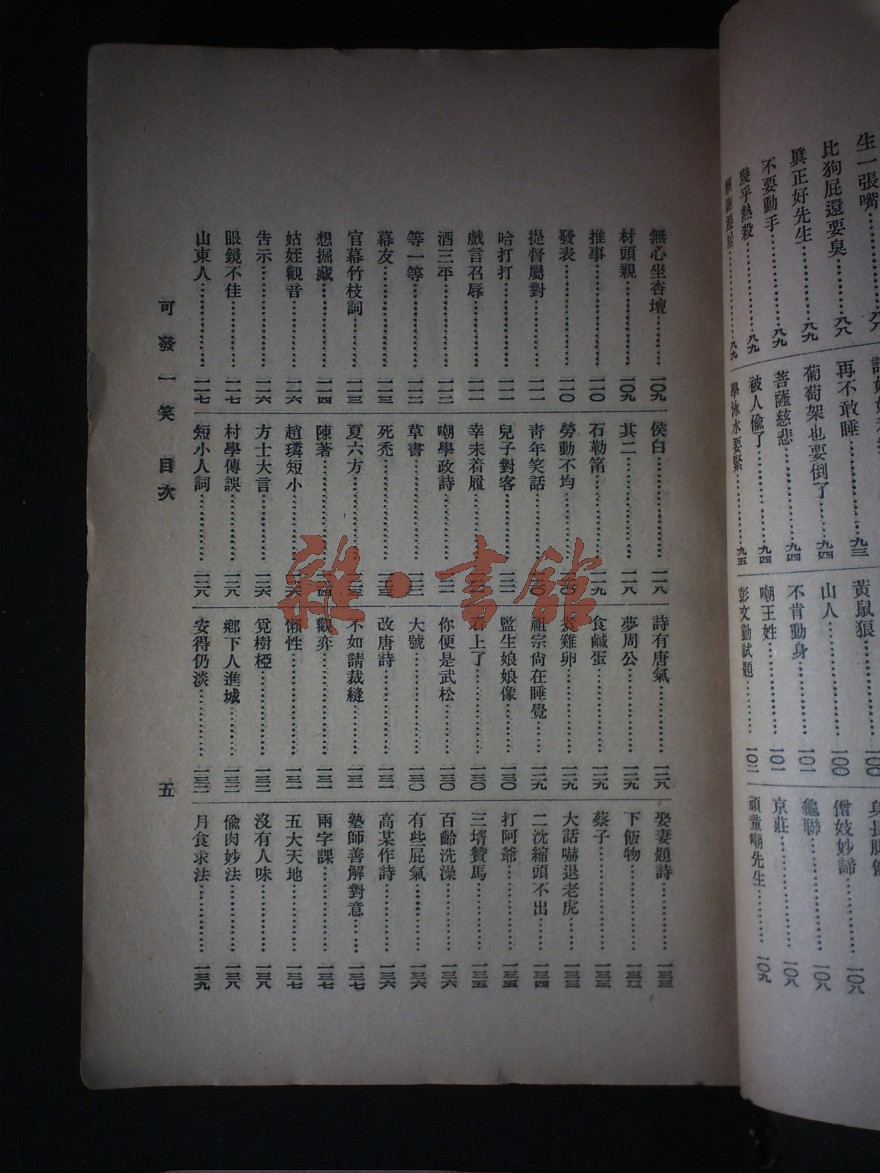 生一張嘴………八八
比狗屁還要臭………八八
眞正好先生………八九
不要動手………八九
幾乎熱殺………八九
八九
再不敢睡………九三
葡萄架也要倒了………九四
菩薩慈悲………九四
被人偸了………九四
學泳水要緊………九五
黃鼠狼………一〇〇
山人………一〇〇
不肯動身………一〇一
嘲王姓………一〇一
彭文勤試題………一〇二
僧妓妙諦………一〇八
龜聯………一〇八
京莊………一〇八
頑童嘲先生………一〇九
無心坐杏壇………一〇九
材頭親………一〇九
推事………一一〇
發表………一一〇
提督屬對………一一一
哈打打………一一一
戲言召辱………一一一
酒三平………一一二
等一等………一一二
幕友………一一三
官幕竹枝詞………一一三
想掘藏………一一四
姑姪觀音………一一六
告示………一一六
眼鏡不佳………一一七
山東人………一一七
侯白………一一八
其二………一一八
石勒筩………一一九
勞動不均
靑年笑話
兒子對客
幸未着履
嘲學政詩
草書
死禿
夏六方
陳著
趙璘短小………一二六
方士大言………一二六
村學傳誤………一二八
短小人詞………一二八
詩有唐氣………一二八
夢周公………一二九
食鹹蛋………一二九
雞卵………一二九
祖宗尙在睡覺………一二九
監生娘娘像………一三〇
石上了………一三〇
你便是武松………一三〇
大號………一三〇
改唐詩………一三一
不如請裁縫………一三一
觀弈………一三一
懶性………一三一
覓樹椏………一三二
鄉下人進城………一三二
安得仍淡………一三二
娶妻題詩………一三三
下飯物………一三三
蔡子………一三三
大話嚇退老虎………一三三
二沈縮頭不出………一三四
打阿爺………一三五
三壻贊馬………一三五
百齡洗澡………一三六
有些屁氣………一三六
高某作詩………一三六
塾師善解對意………一三七
兩字課………一三七
五大天地………一三七
沒有人味………一三八
偸肉妙法………一三八
月食求法………一三九
可發一笑 目次
五
雜·書館